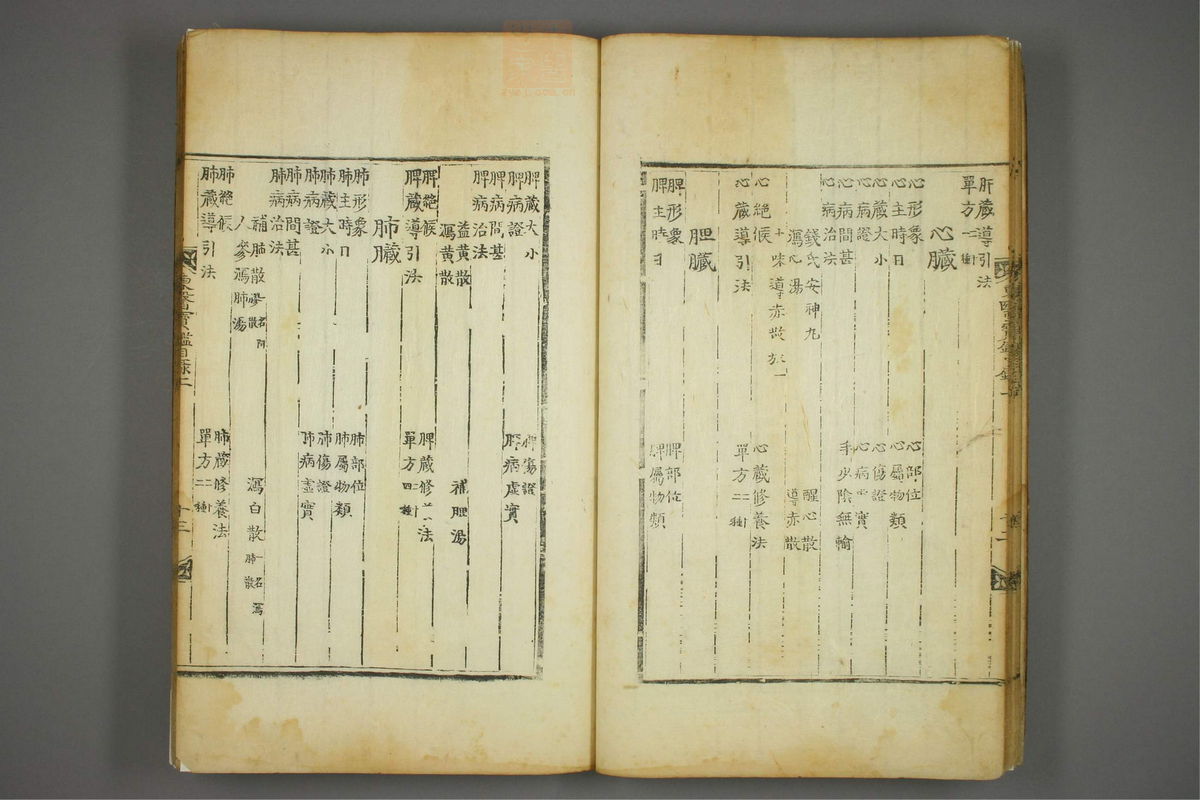 肝藏導引法
單方二種
心臟
心形象
心部位
心主時日
心屬物類
心藏大小
心傷證
心病證
心病虛實
心病間甚
手少陰無輸
心病治法
錢氏安神丸
醒心散
瀉心湯
導赤散
十味導赤散
心絕候
心藏修養法
心藏導引法
單方二種
脾臟
脾形象
脾部位
脾主時日
脾屬物類
脾藏大小
脾傷證
脾病證
脾病虛實
脾病間甚
脾病治法
益黃散
補脾湯
瀉黃散
脾絕候
脾藏修養法
脾藏導引法
單方四種
肺臟
肺形象
肺部位
肺主時日
肺屬物類
肺藏大小
肺傷證
肺病證
肺病虛實
肺病間甚
肺病治法
補肺散 一名阿膠散
瀉白散 一名瀉肺散
人參瀉肺湯
肺絕候
肺藏修養法
肺藏導引法
單方二種
東醫寶鑑目錄二
十三